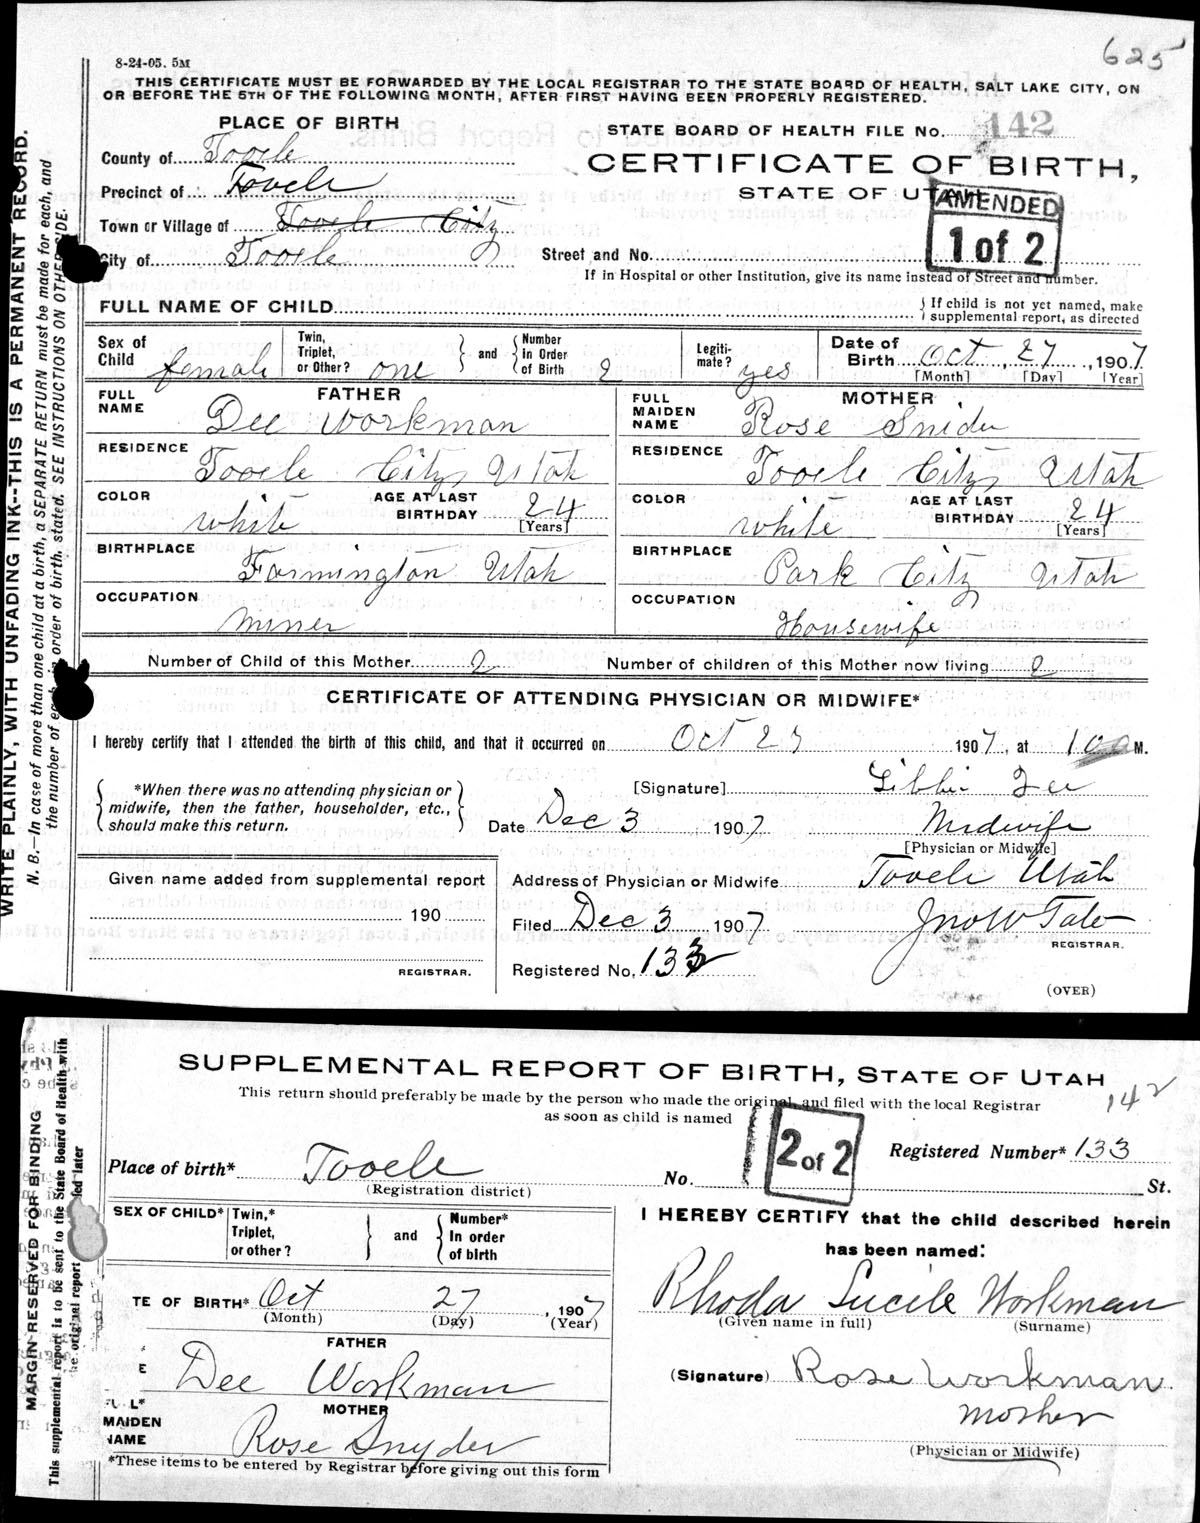 625
8-24-05. 5M
THIS CERTIFICATE MUST BE FORWARDED BY THE LOCAL REGISTRAR TO THE STATE BOARD OF HEALTH, SALT LAKE CITY, ON
OR BEFORE THE 5TH OF THE FOLLOWING MONTH, AFTER FIRST HAVING BEEN PROPERLY REGISTERED.
PLACE OF BIRTH
STATE BOARD OF HEALTH FILE No. 142
County of Tooele
CERTIFICATE OF BIRTH,
Precinct of Tooele
STATE OF UTAH
AMENDED
1 of 2
Town or Village of Tooele City
City of Tooele
Street and No.
If in Hospital or other Institution, give its name instead of Street and number.
FULL NAME OF CHILD
If child is not yet named, make
supplemental report, as directed
Sex of Child female Twin, Triplet, or Other? one and Number in Order of Birth 2 Legiti-mate? yes Date of Birth Oct 27, 1907
[Month] [Day] [Year]
FATHER
MOTHER
FULL NAME Dee Workman
FULL MAIDEN NAME Rose Snider
RESIDENCE Tooele City Utah
RESIDENCE Tooele City Utah
COLOR white AGE AT LAST BIRTHDAY 24 [Years]
COLOR white AGE AT LAST BIRTHDAY 24 [Years]
BIRTHPLACE Farmington Utah
BIRTHPLACE Park City Utah
OCCUPATION Miner
OCCUPATION Housewife
Number of Child of this Mother 2 Number of children of this Mother now living 2
CERTIFICATE OF ATTENDING PHYSICIAN OR MIDWIFE*
I hereby certify that I attended the birth of this child, and that it occurred on Oct 27 1907, at 1 M.
*When there was no attending physician or
midwife, then the father, householder, etc.,
should make this return.
[Signature] Libbie Lee
Date Dec 3 1907 Midwife
[Physician or Midwife]
Given name added from supplemental report
190
REGISTRAR.
Address of Physician or Midwife Tooele Utah
Filed Dec 3 1907 Jno W Tate
REGISTRAR.
Registered No. 133
(OVER)
WRITE PLAINLY, WITH UNFADING INK--THIS IS A PERMANENT RECORD.
N. B.—In case of more than one child at a birth, a SEPARATE RETURN must be made for each, and
the number of each, in order of birth, stated. SEE INSTRUCTIONS ON OTHER SIDE.
SUPPLEMENTAL REPORT OF BIRTH, STATE OF UTAH
This return should preferably be made by the person who made the original, and filed with the local Registrar
as soon as child is named
142
2 of 2
Registered Number* 133
Place of birth* Tooele
(Registration district)
No. St.
SEX OF CHILD* Twin,* Triplet, or other? and Number* In order of birth
I HEREBY CERTIFY that the child described herein
has been named:
TE OF BIRTH* Oct 27, 1907
(Month) (Day) (Year)
Rhoda Lucile Workman
(Given name in full) (Surname)
FATHER
E Dee Workman
(Signature) Rose Workman
Mother
(Physician or Midwife)
MOTHER
MAIDEN NAME Rose Snyder
*These items to be entered by Registrar before giving out this form
MARGIN RESERVED FOR BINDING
This supplemental report is to be sent to the State Board of Health with
original report later